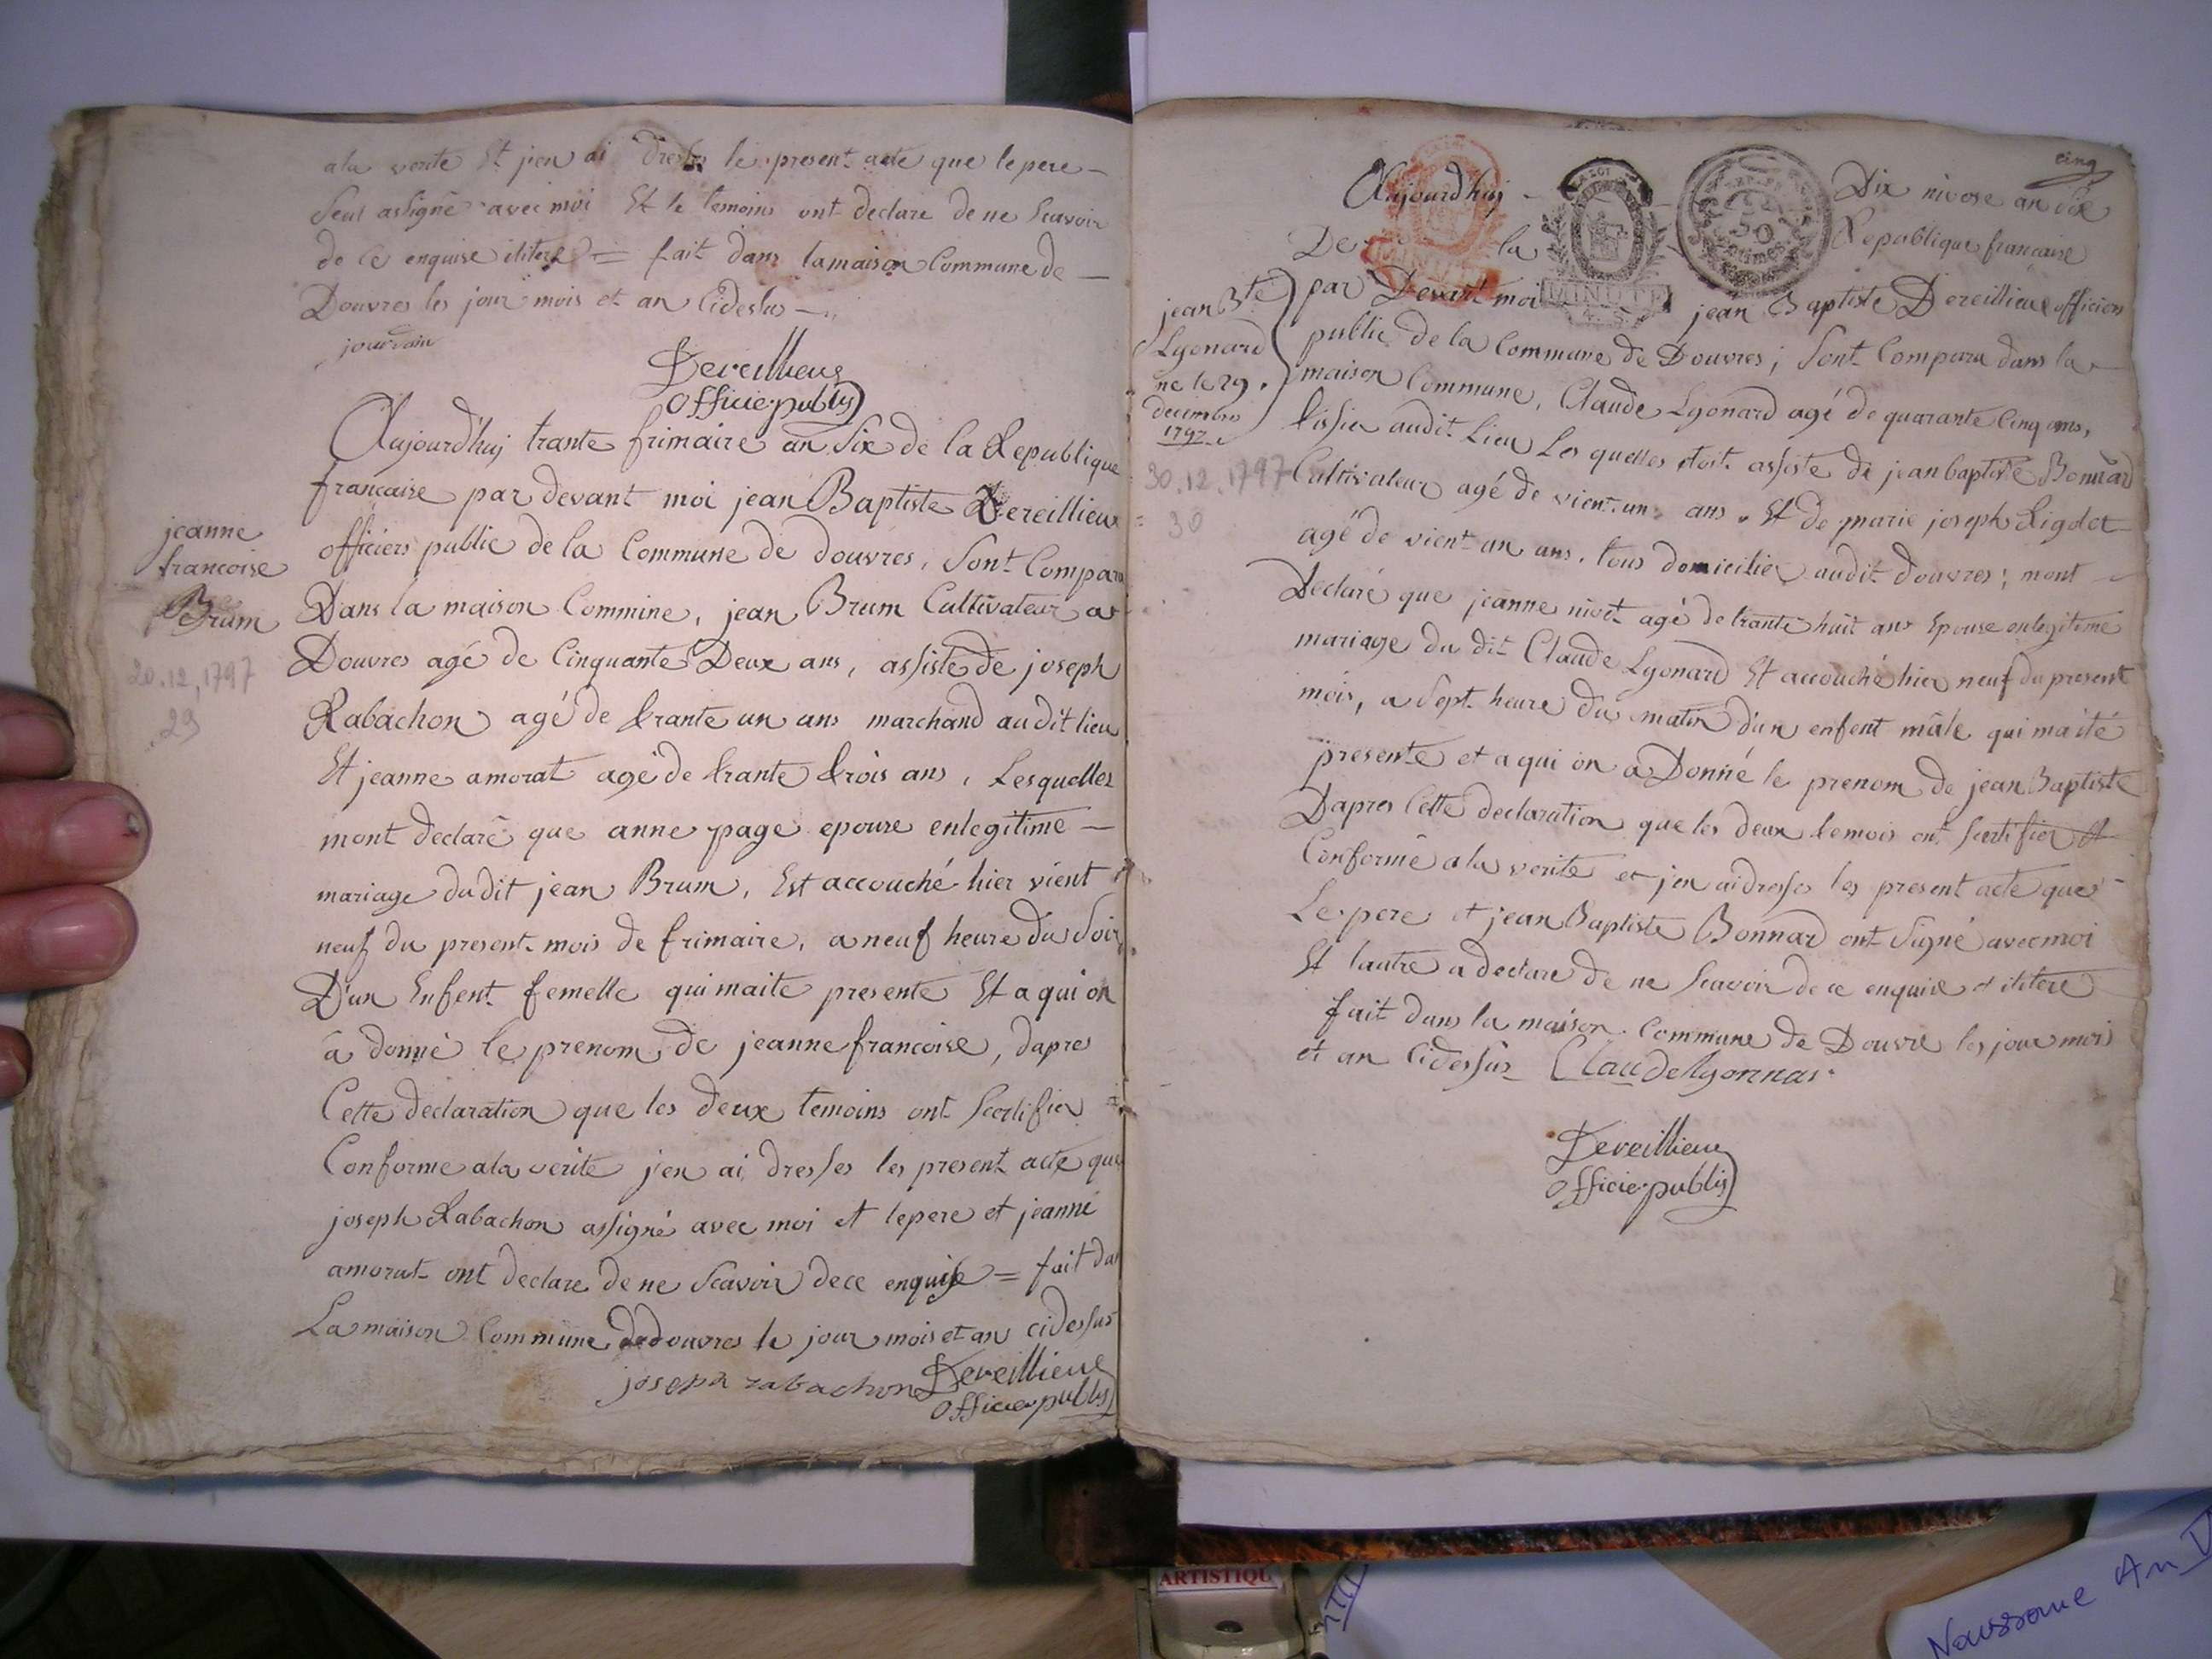 ala verité Et jien ai dresses le present acte que lepere
Seul assigné avec moi Et le temoins ont declare de ne Scavoir
de ce enquise = fait dans lamaison Commune de
Douvres les jour mois et an Cidessus
jourdain
Dereillieux
Officier publis
Aujourd'huj trante frimaire an Six de la Republique
francaise par devant moi jean Baptiste Dereillieux
officiers public de la Commune de douvres, Sont Comparu
Dans la maison Commine, jean Brum Cultivateur a
Douvres agé de Cinquante Deux ans, assisté de joseph
Rabachon agé de trante un ans marchand audit lieu
Et jeanne amorat agé de trante trois ans, Lesquelles
mont declaré que anne page epouse enlegitime
mariage dudit jean Brum, Est accouché hier vient
neuf du present mois de frimaire, a neuf heure du Soir
D'un Enfent femelle qui maité presenté Et a qui on
a donné le prenom de jeanne francoise, dapres
Cette declaration que les deux temoins ont Scertifier
Conforme ala verité j'en ai dresses les present acte que
joseph Rabachon assigné avec moi et lepere et jeanne
amorat ont declare de ne Scavoir de ce enquise = fait dans
La maison Commune dedouvres le jour mois et an cidessus
joseph rabachon Dereillieux
Officier publis
jeanne
francoise
Brum
20.12.1797
29
cinq
Aujourdhuj Dix nivose an six
De la Republique francaise
MINUTE
50
par Devant moi jean Baptiste Dereillieux officiers
public de la Commune de Douvres; Sont Comparu dans la
maison Commune, Claude Lyonard agé de quarante Cinq ans,
tissier audit Lieu Les quelles etoit assiste de jean baptiste Bonnard
Cultivateur agé de vient un ans. Et de marie joseph Rigolet
agé de vient un ans, tous domicilier audit douvres; mont
Declaré que jeanne niort agé de trante huit ans Epouse enlegitime
mariage du dit Claude Lyonard Et accouché hier neuf du present
mois, a Sept heure du matin d'un enfent mâle qui maité
presenté et a qui on a Donné le prenom de jean Baptiste
Dapres Cette declaration que les deux temois ont Scertifier Et
Conformé ala verité et j'en ai dresses les present acte que
Le pere et jean Baptiste Bonnard ont Signé avec moi
Et lautre a declare de ne Scavoir de ce enquise
fait dans la maison Commune de Douvre les jour mois
et an Cidessus Claude lyonnar
Dereillieux
Officier publis
jean Bte
Lyonard
ne le 29
decembre
1797
30.12.1797
30
ARTISTIQU
Naissance An V